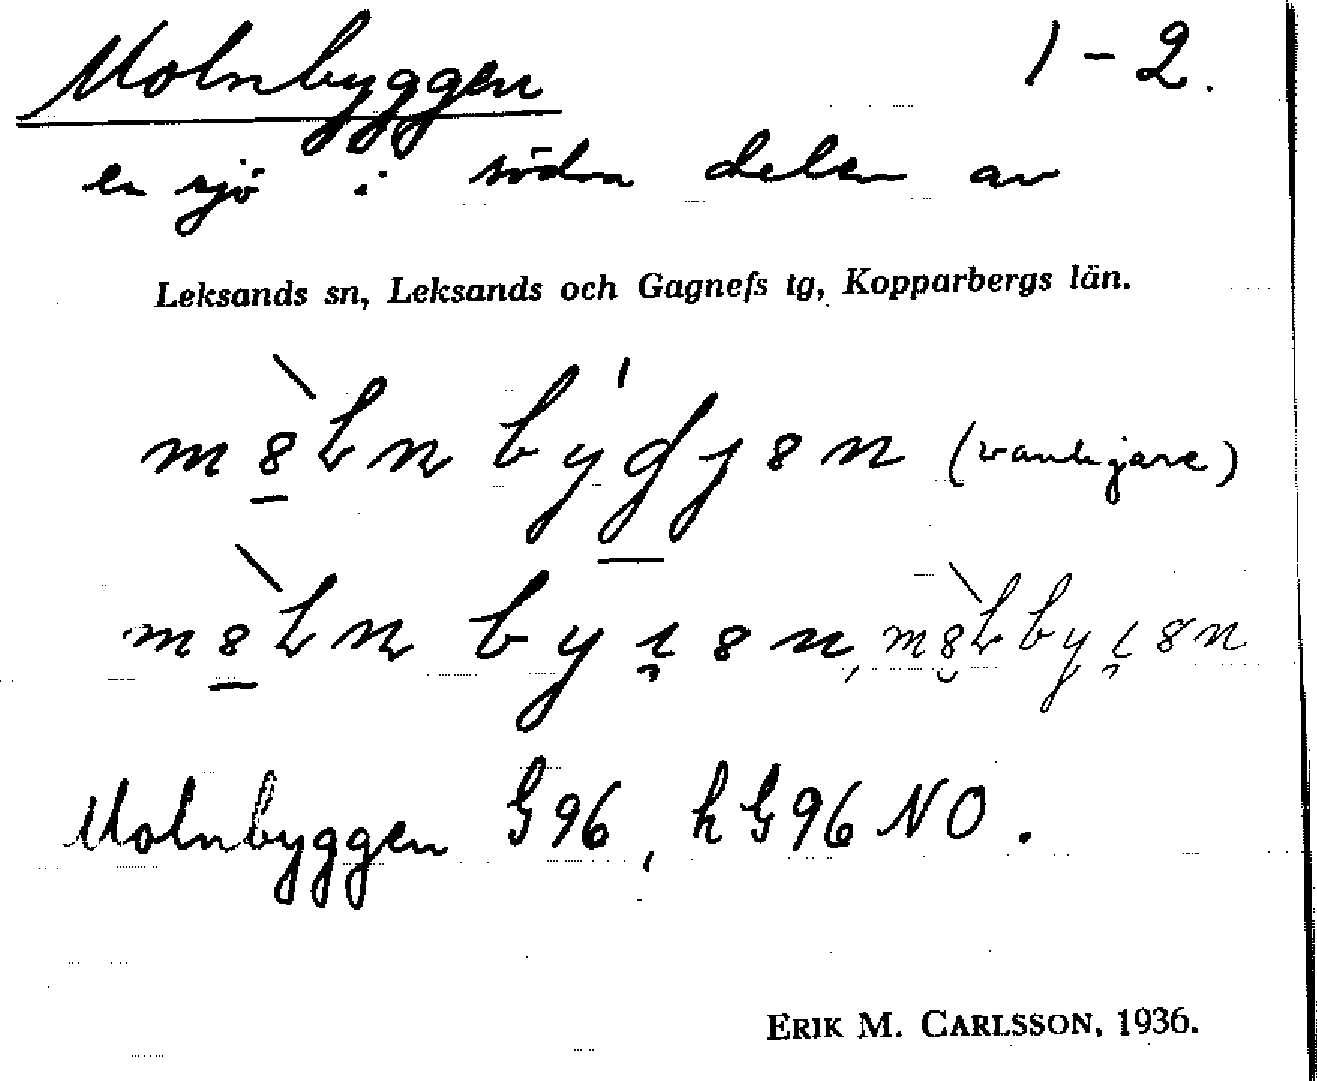 Molnbyggen 1-2.
en sjö i södra delen av
Leksands sn, Leksands och Gagnefs tg, Kopparbergs län.
(vanligare)
Molnbyggen G96, h G96 NO.
ERIK M. CARLSSON, 1936.